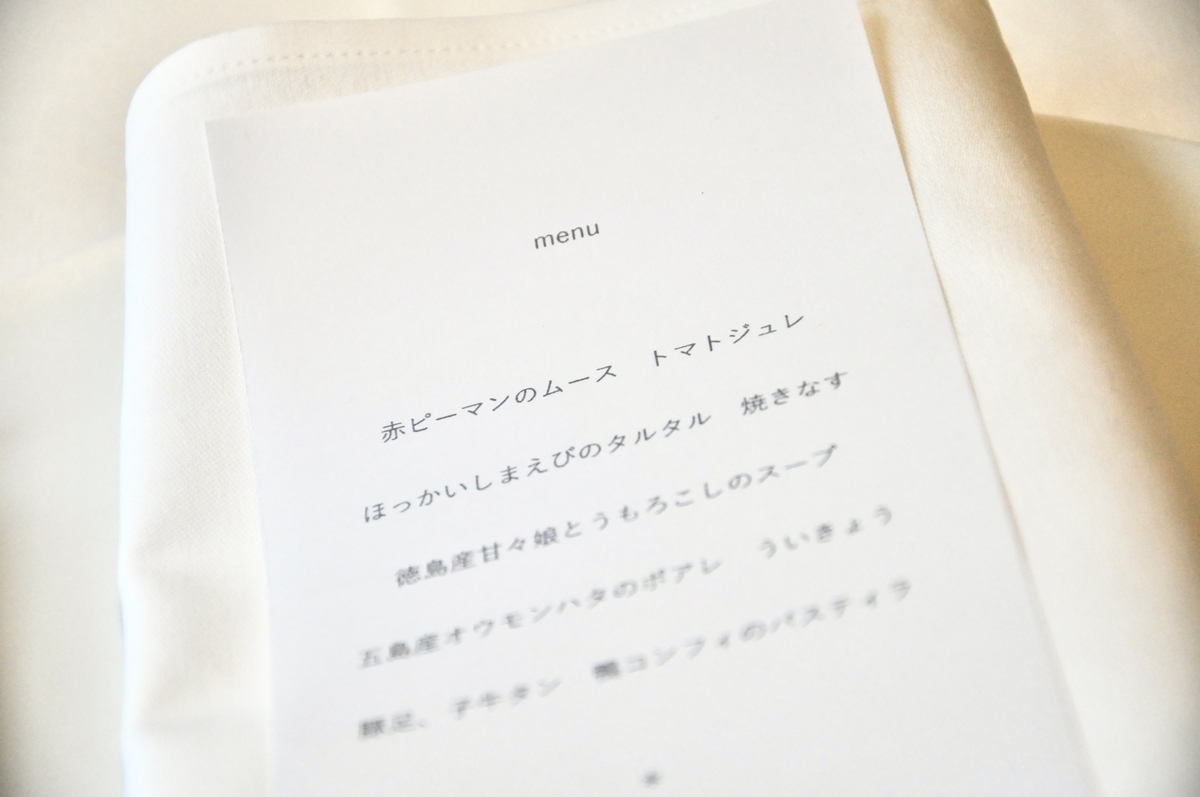 menu
赤ピーマンのムース　トマトジュレ
ほっかいしまえびのタルタル　焼きなす
徳島産甘々娘とうもろこしのスープ
五島産オウモンハタのポアレ　ういきょう
豚足、子牛タン　鴨コンフィのパスティラ
*